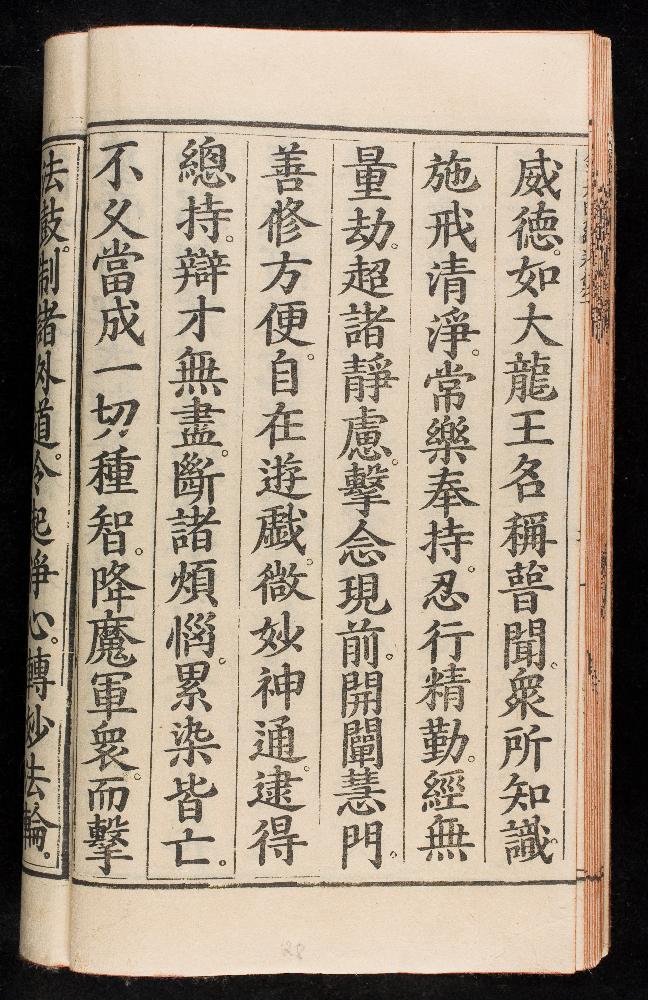 威德。如大龍王名稱普聞。衆所知識。
施戒清淨。常樂奉持。忍行精勤。經無
量劫。超諸靜慮。擊念現前。開闡慧門。
善修方便。自在遊戲。微妙神通。逮得
總持。辯才無盡。斷諸煩惱。累染皆亡。
不久當成一切種智。降魔軍衆。而擊
法鼓。制諸外道。令起淨心。轉妙法輪。
28